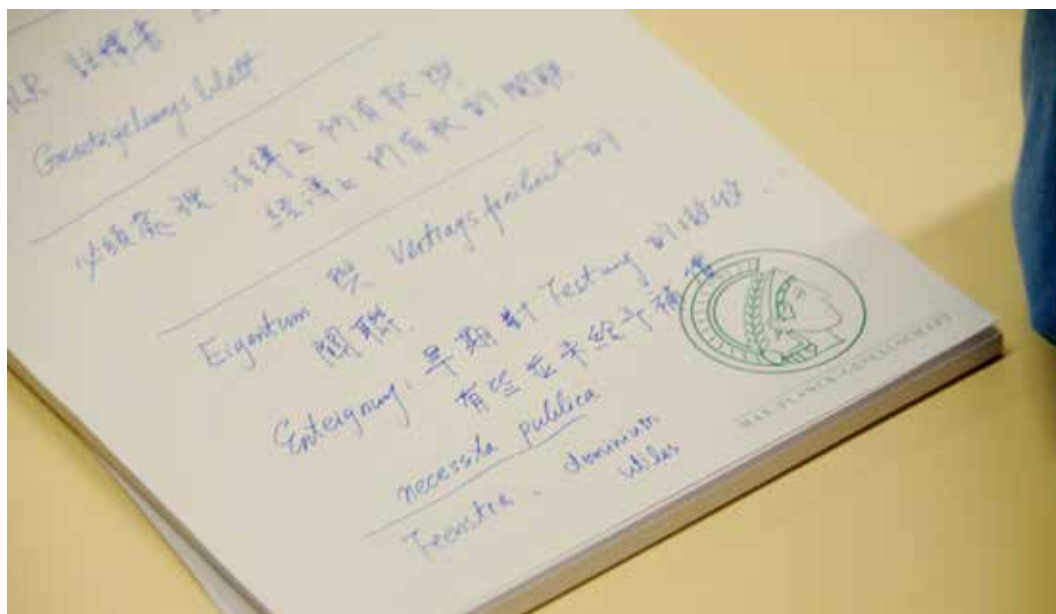 註釋書
Gesetzgebungs
必須處理 法律上的所有權與
經濟上 所有權的關聯.
Eigentum 與 Vertragsfreiheit 的
關聯.
Enteignung: 早期對 Festung 的徵收
有些並未給予補償
necessita publica
Feenstra. dominium
utiles
MAX-PLANCK-GESELLSCHAFT